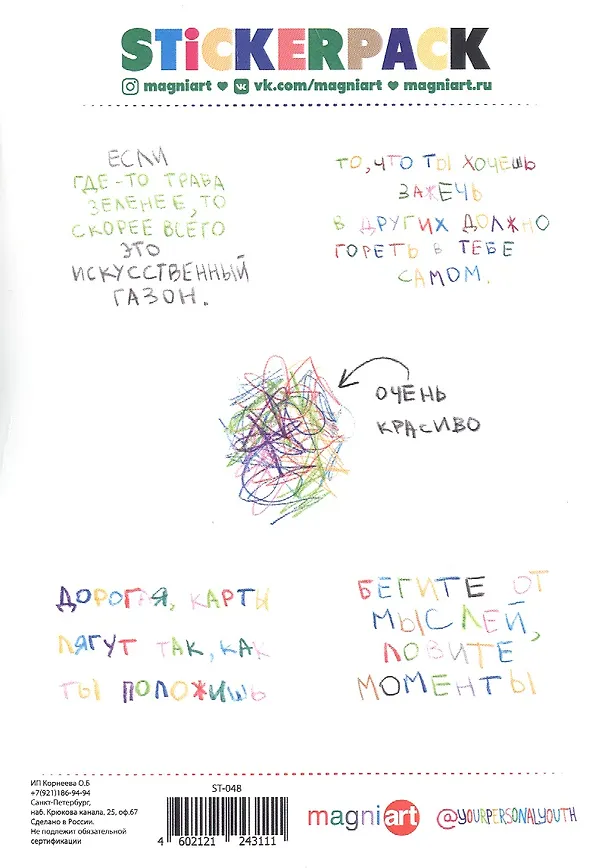 STiCKERPACK
magniart vk.com/magniart magniart.ru
ЕСЛИ
ГДЕ-ТО ТРАВА
ЗЕЛЕНЕЕ, ТО
СКОРЕЕ ВСЕГО
ЭТО
ИСКУССТВЕННЫЙ
ГАЗОН.
ТО, ЧТО ТЫ ХОЧЕШЬ
ЗАЖЕЧЬ
В ДРУГИХ ДОЛЖНО
ГОРЕТЬ В ТЕБЕ
САМОМ.
ОЧЕНЬ
КРАСИВО
ДОРОГАЯ, КАРТЫ
ЛЯГУТ ТАК, КАК
ТЫ ПОЛОЖИШЬ
БЕГИТЕ ОТ
МЫСЛЕЙ,
ЛОВИТЕ
МОМЕНТЫ
ИП Корнеева О.Б
+7(921)186-94-94
Санкт-Петербург,
наб. Крюкова канала, 25, оф.67
Сделано в России.
Не подлежит обязательной
сертификации
ST-048
4 602121 243111 >
magniart
@YOURPERSONALYOUTH